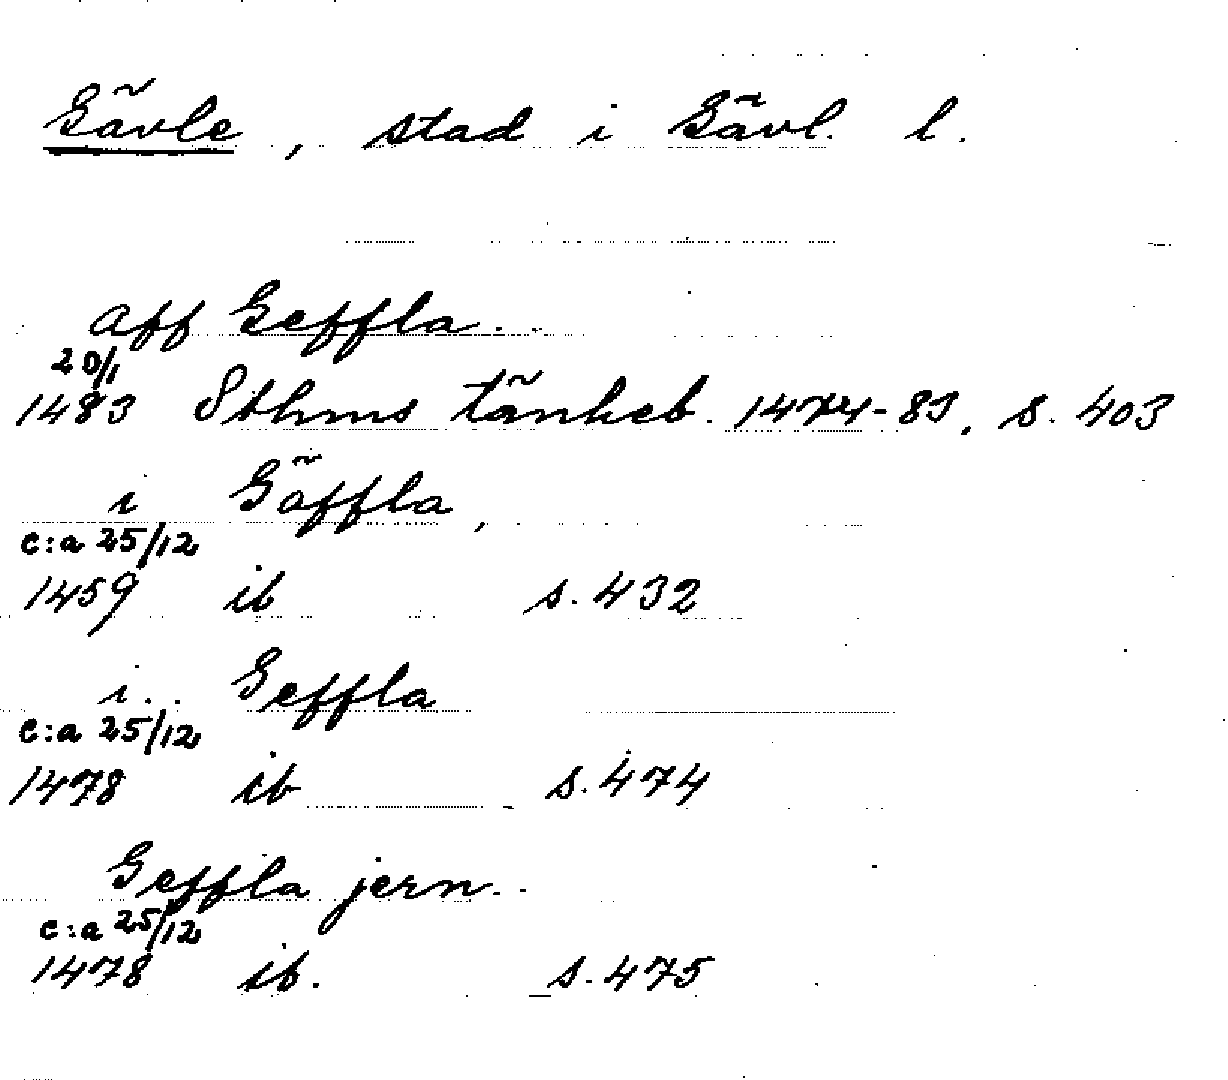 Gävle, stad i Gävl. l.
aff Geffla
20/1
1483 Sthms tänkeb. 1474-83, s. 403
i Gäffla,
c:a 25/12
1459 ib s. 432
i Geffla
c:a 25/12
1478 ib s. 474
Geffla jern
c:a 25/12
1478 ib. s. 475